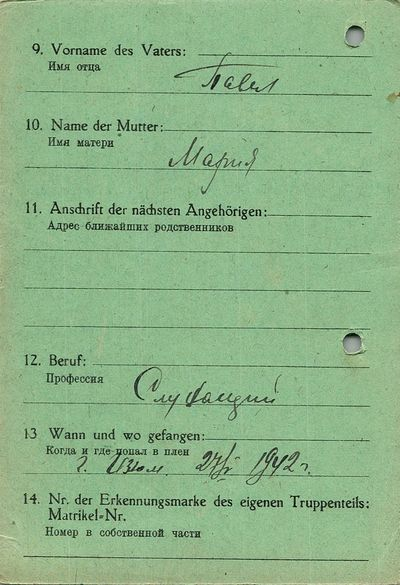 9. Vorname des Vaters:
Имя отца
Павел
10. Name der Mutter:
Имя матери
Мария
11. Anschrift der nächsten Angehörigen:
Адрес ближайших родственников
12. Beruf:
Профессия
Служащий
13 Wann und wo gefangen:
Когда и где попал в плен
г. Изюм 1942 г.
14. Nr. der Erkennungsmarke des eigenen Truppenteils:
Matrikel-Nr.
Номер в собственной части